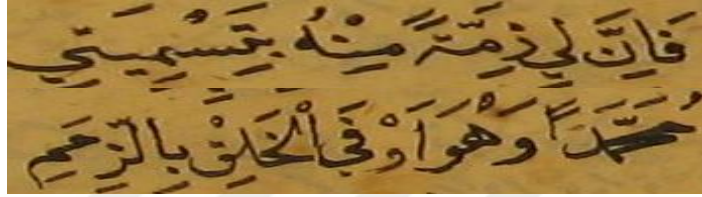 فَاِنَّ لِي ذِمَّةً مِنْهُ بِتَسْمِيَتِي
مُحَمَّدًا وَهْوَ اَوْفَي الْخَلْقِ بِالذِّمَمِ